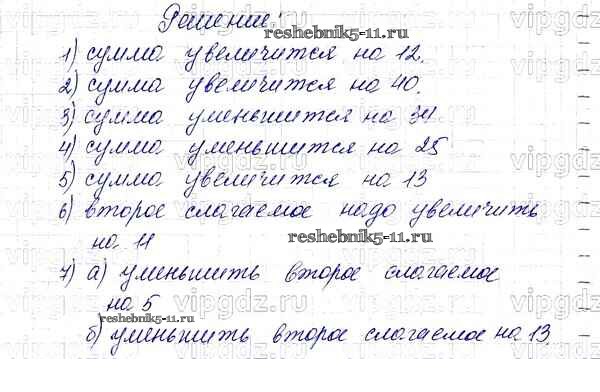 Решение:
reshebnik5-11.ru
1) сумма увеличится на 12.
2) сумма увеличится на 40.
3) сумма уменьшится на 34.
4) сумма уменьшится на 25
5) сумма увеличится на 13
6) второе слагаемое надо увеличить
на 11
reshebnik5-11.ru
7) а) уменьшить второе слагаемое
на 5
reshebnik5-11.ru
б) уменьшить второе слагаемое на 13.
vipgdz.ru